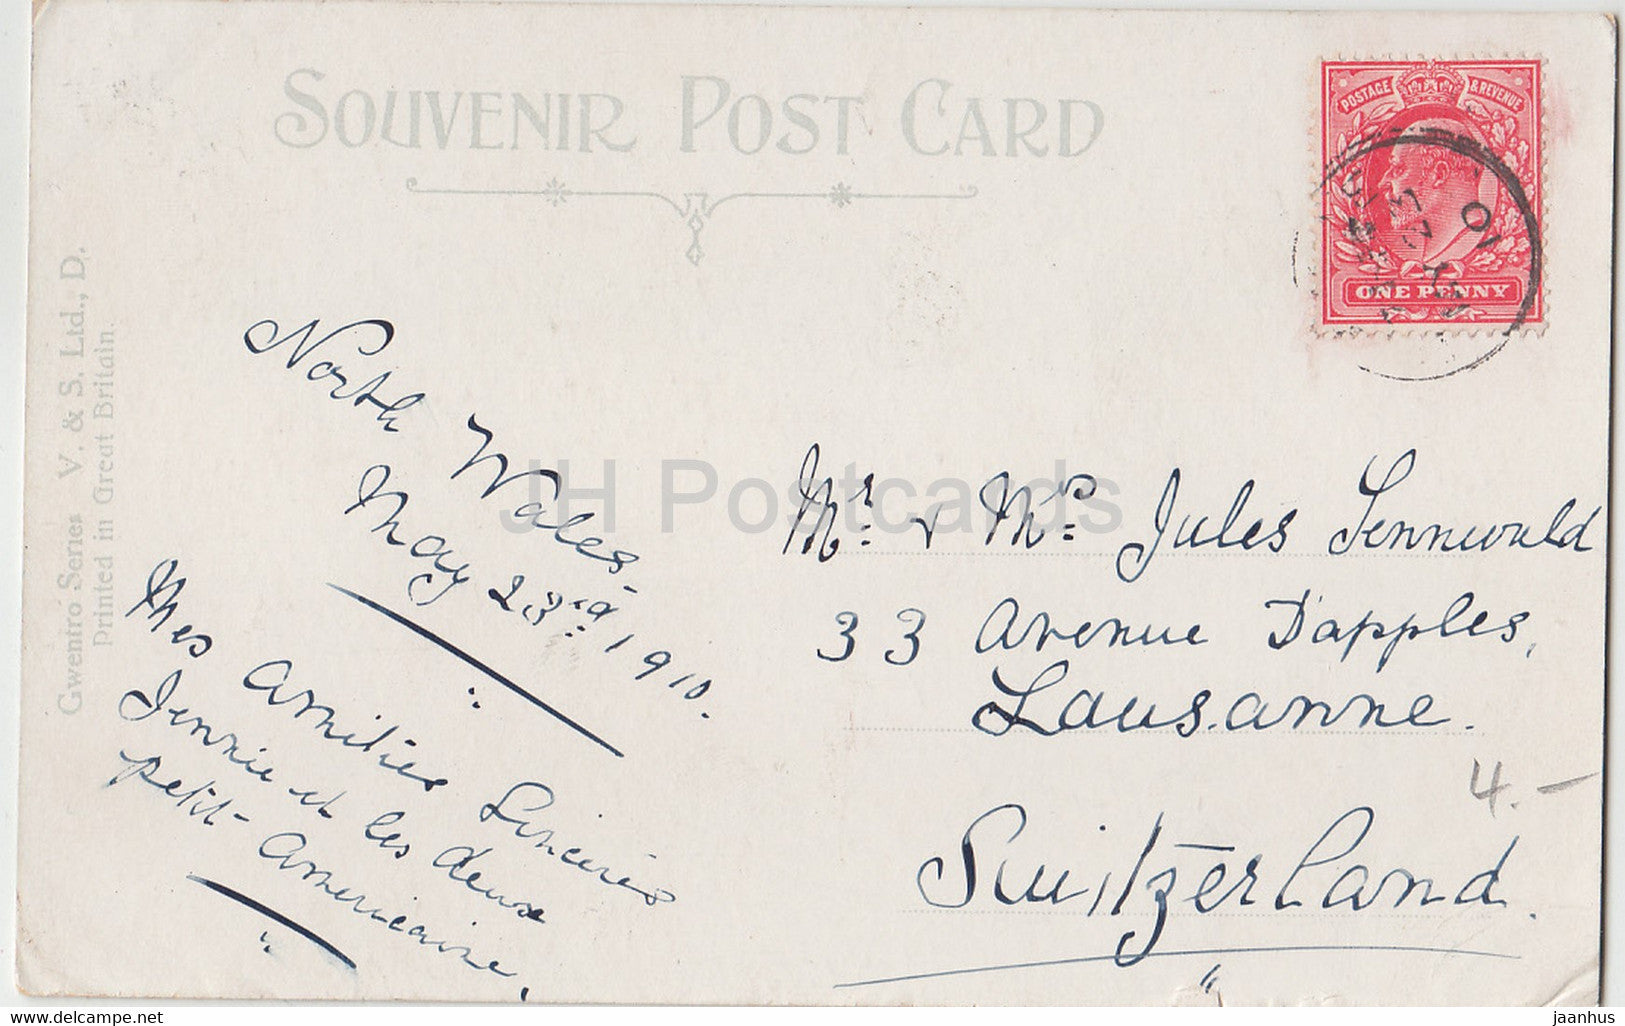 SOUVENIR POST CARD
POSTAGE & REVENUE
ONE PENNY
MY 23
10
Gwentro Series V. & S. Ltd., D.
Printed in Great Britain.
North Wales.
May 23rd, 1910.
Mes Amitiés Sincères
Jennie et les deux
petit- Américaine.
Mr. & Mrs. Jules Sennwald
33 Avenue D'apples,
Lausanne.
Switzerland.
4.-
JH Postcards
delcampe.net
jaanhus